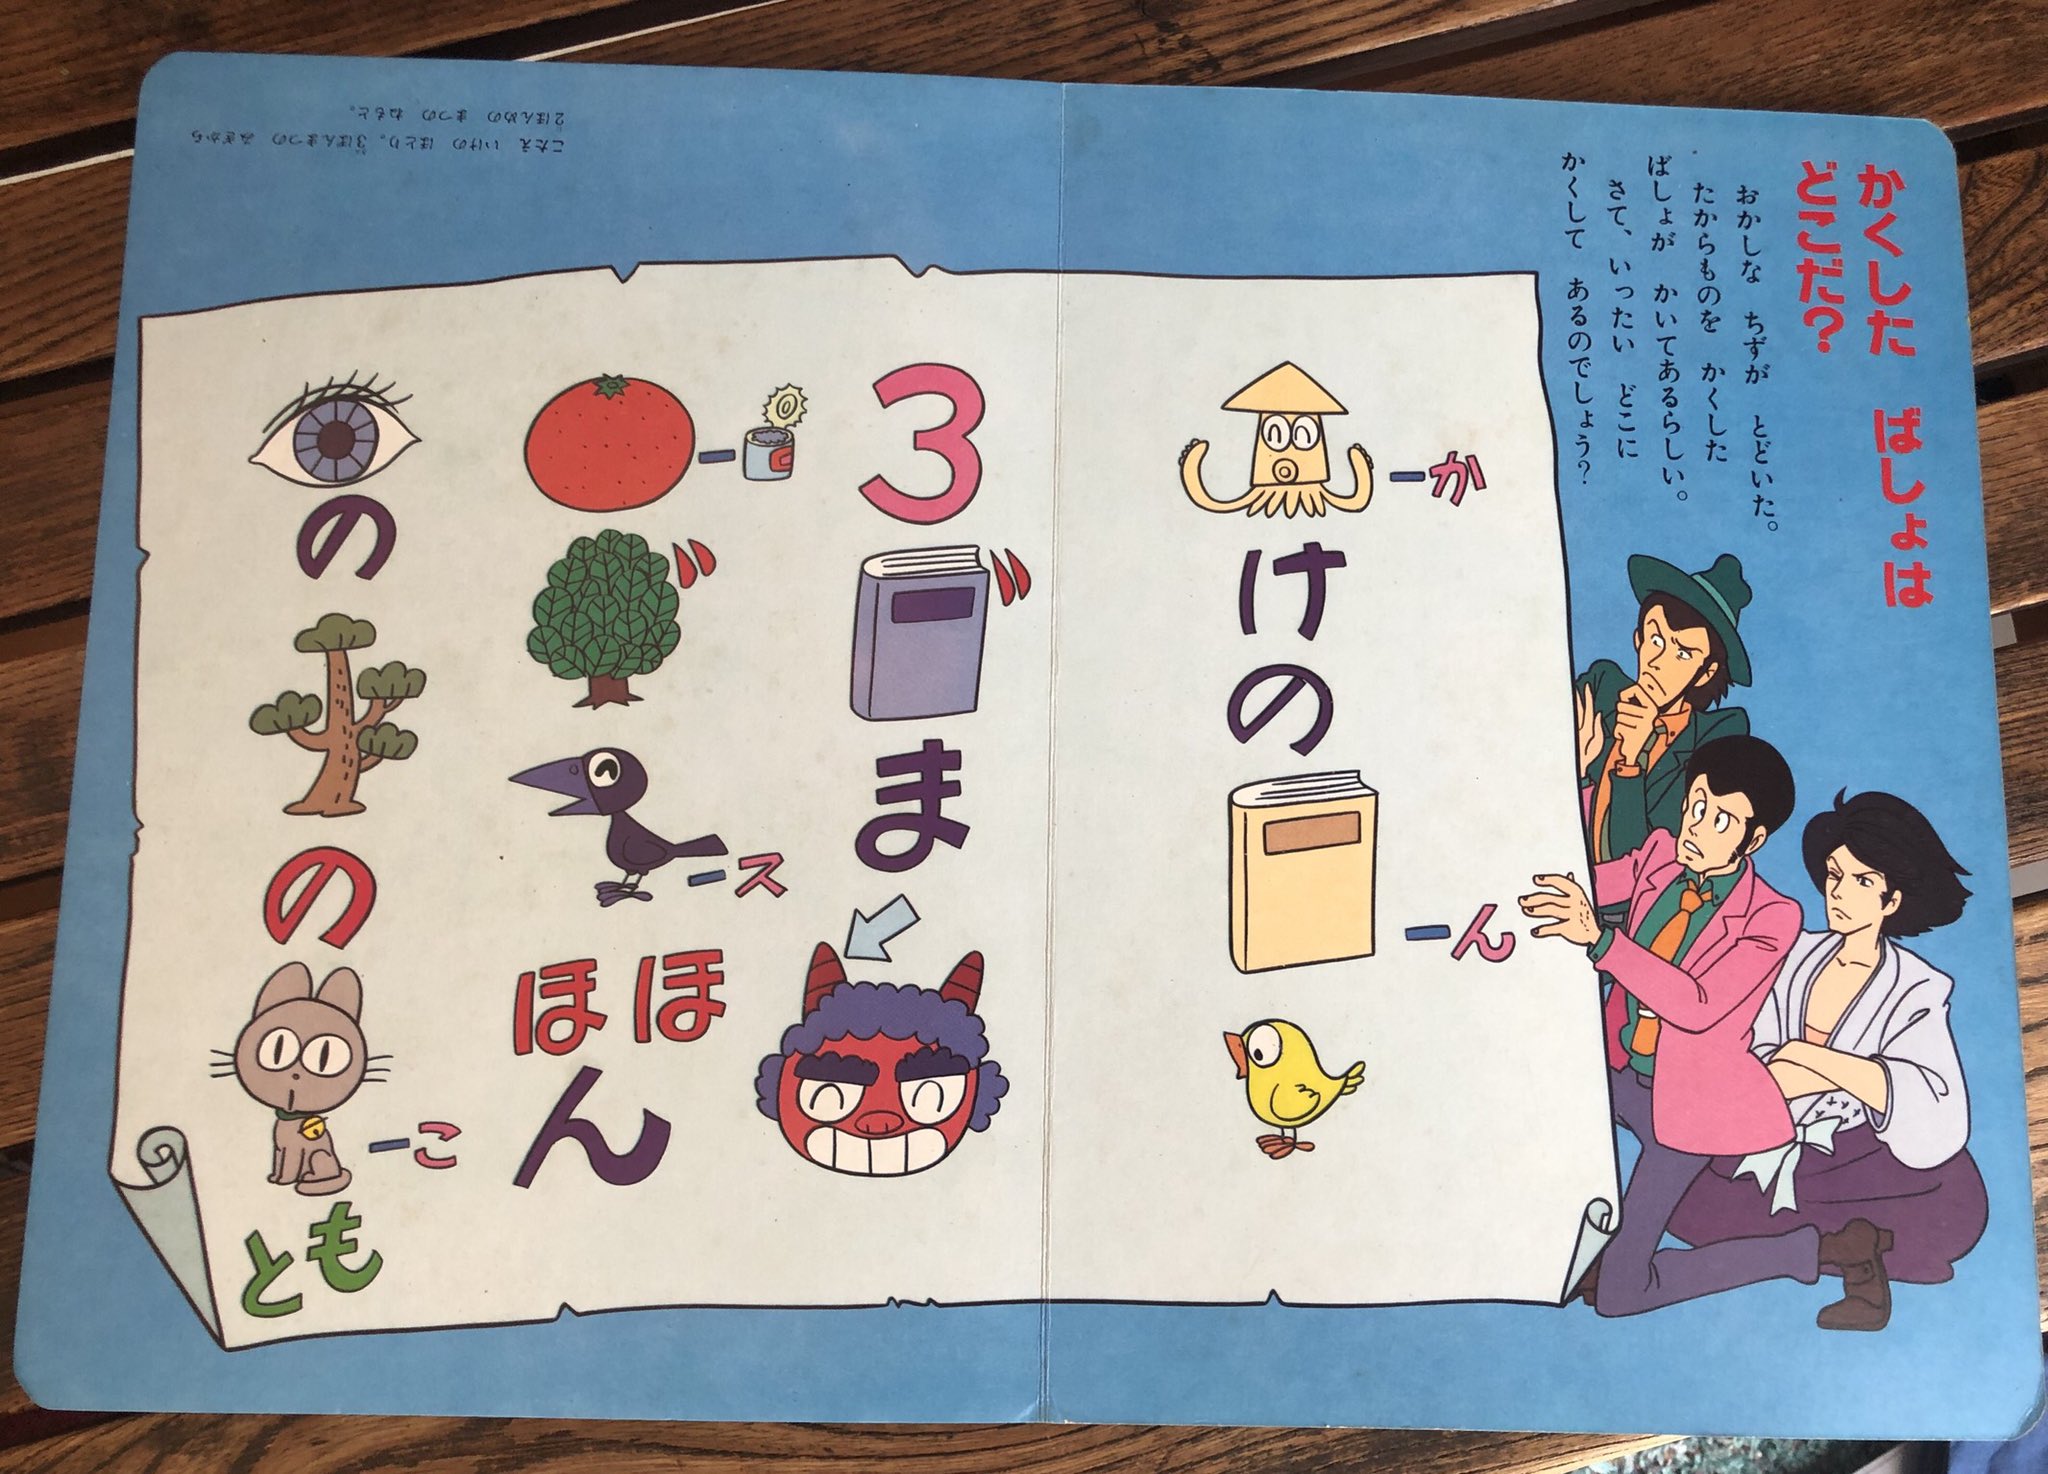 かくした ばしょは
どこだ？
おかしな ちずが とどいた。
たからものを かくした
ばしょが かいてあるらしい。
さて、いったい どこに
かくして あるのでしょう？
ーか
けの
ーん
3
゛
ま
ー
゛
ース
ほほ
ん
の
の
ーこ
とも
こたえ いけの ほとり。3ぼんまつの みぎから
2ほんめの まつの ねもと。